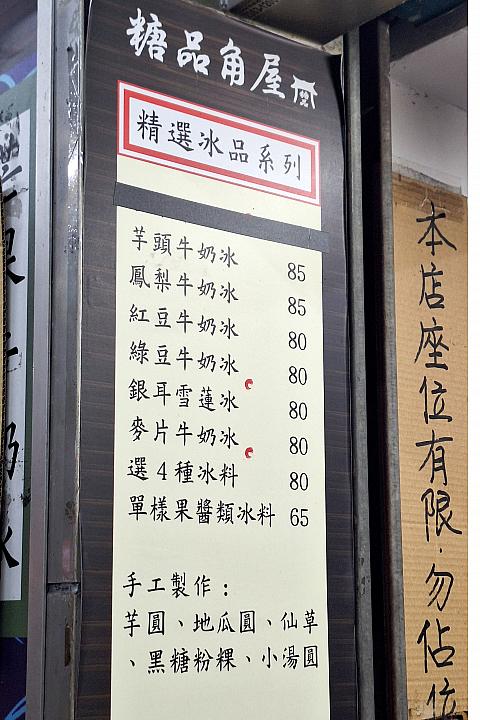 糖品角屋
精選冰品系列
芋頭牛奶冰 85
鳳梨牛奶冰 85
紅豆牛奶冰 80
綠豆牛奶冰 80
銀耳雪蓮冰 80
麥片牛奶冰 80
選4種冰料 80
單樣果醬類冰料 65
手工製作：
芋圓、地瓜圓、仙草
、黑糖粉粿、小湯圓
本店座位有限·勿佔位